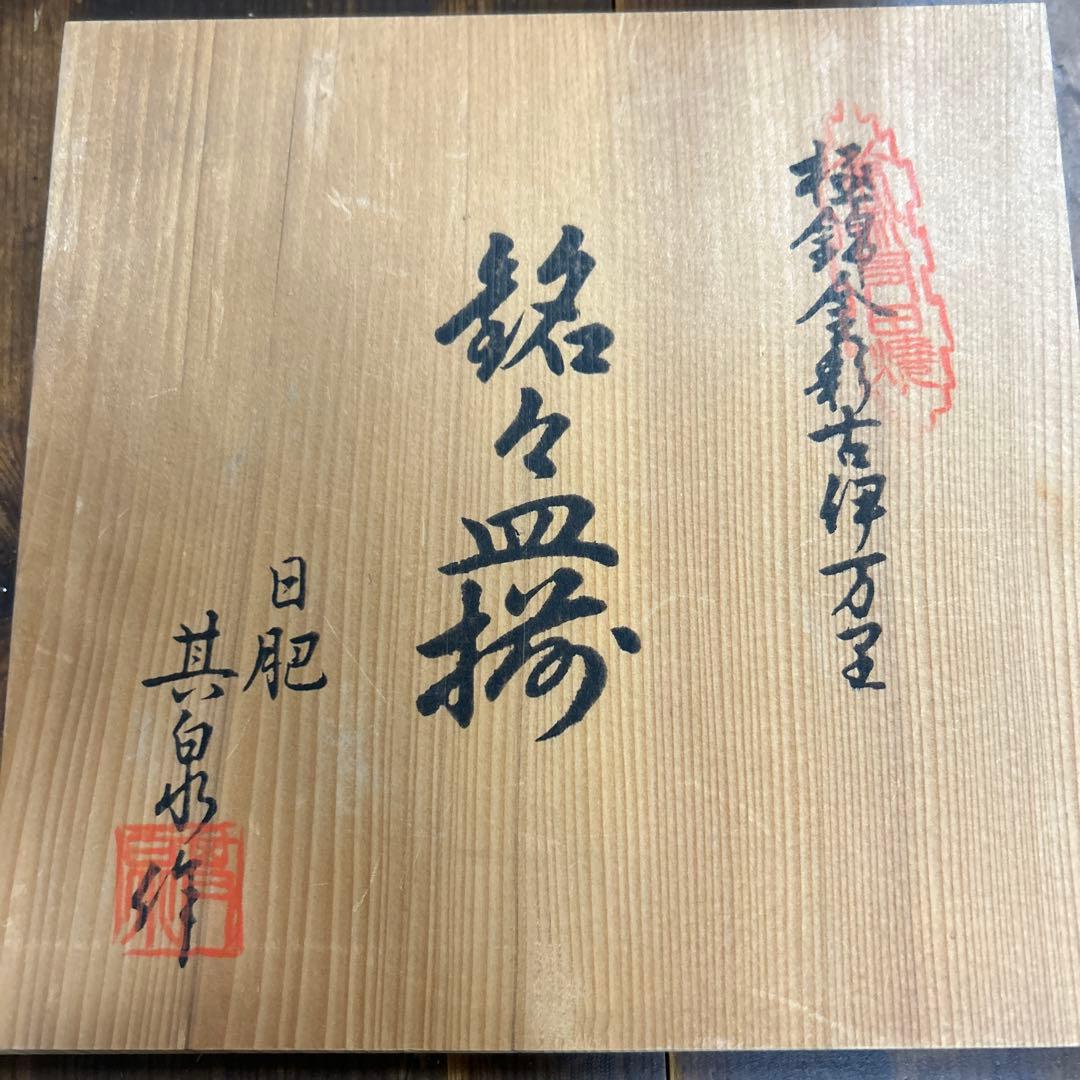 極錦金彩古伊万里
銘々皿揃
日肥
其泉作
有田焼